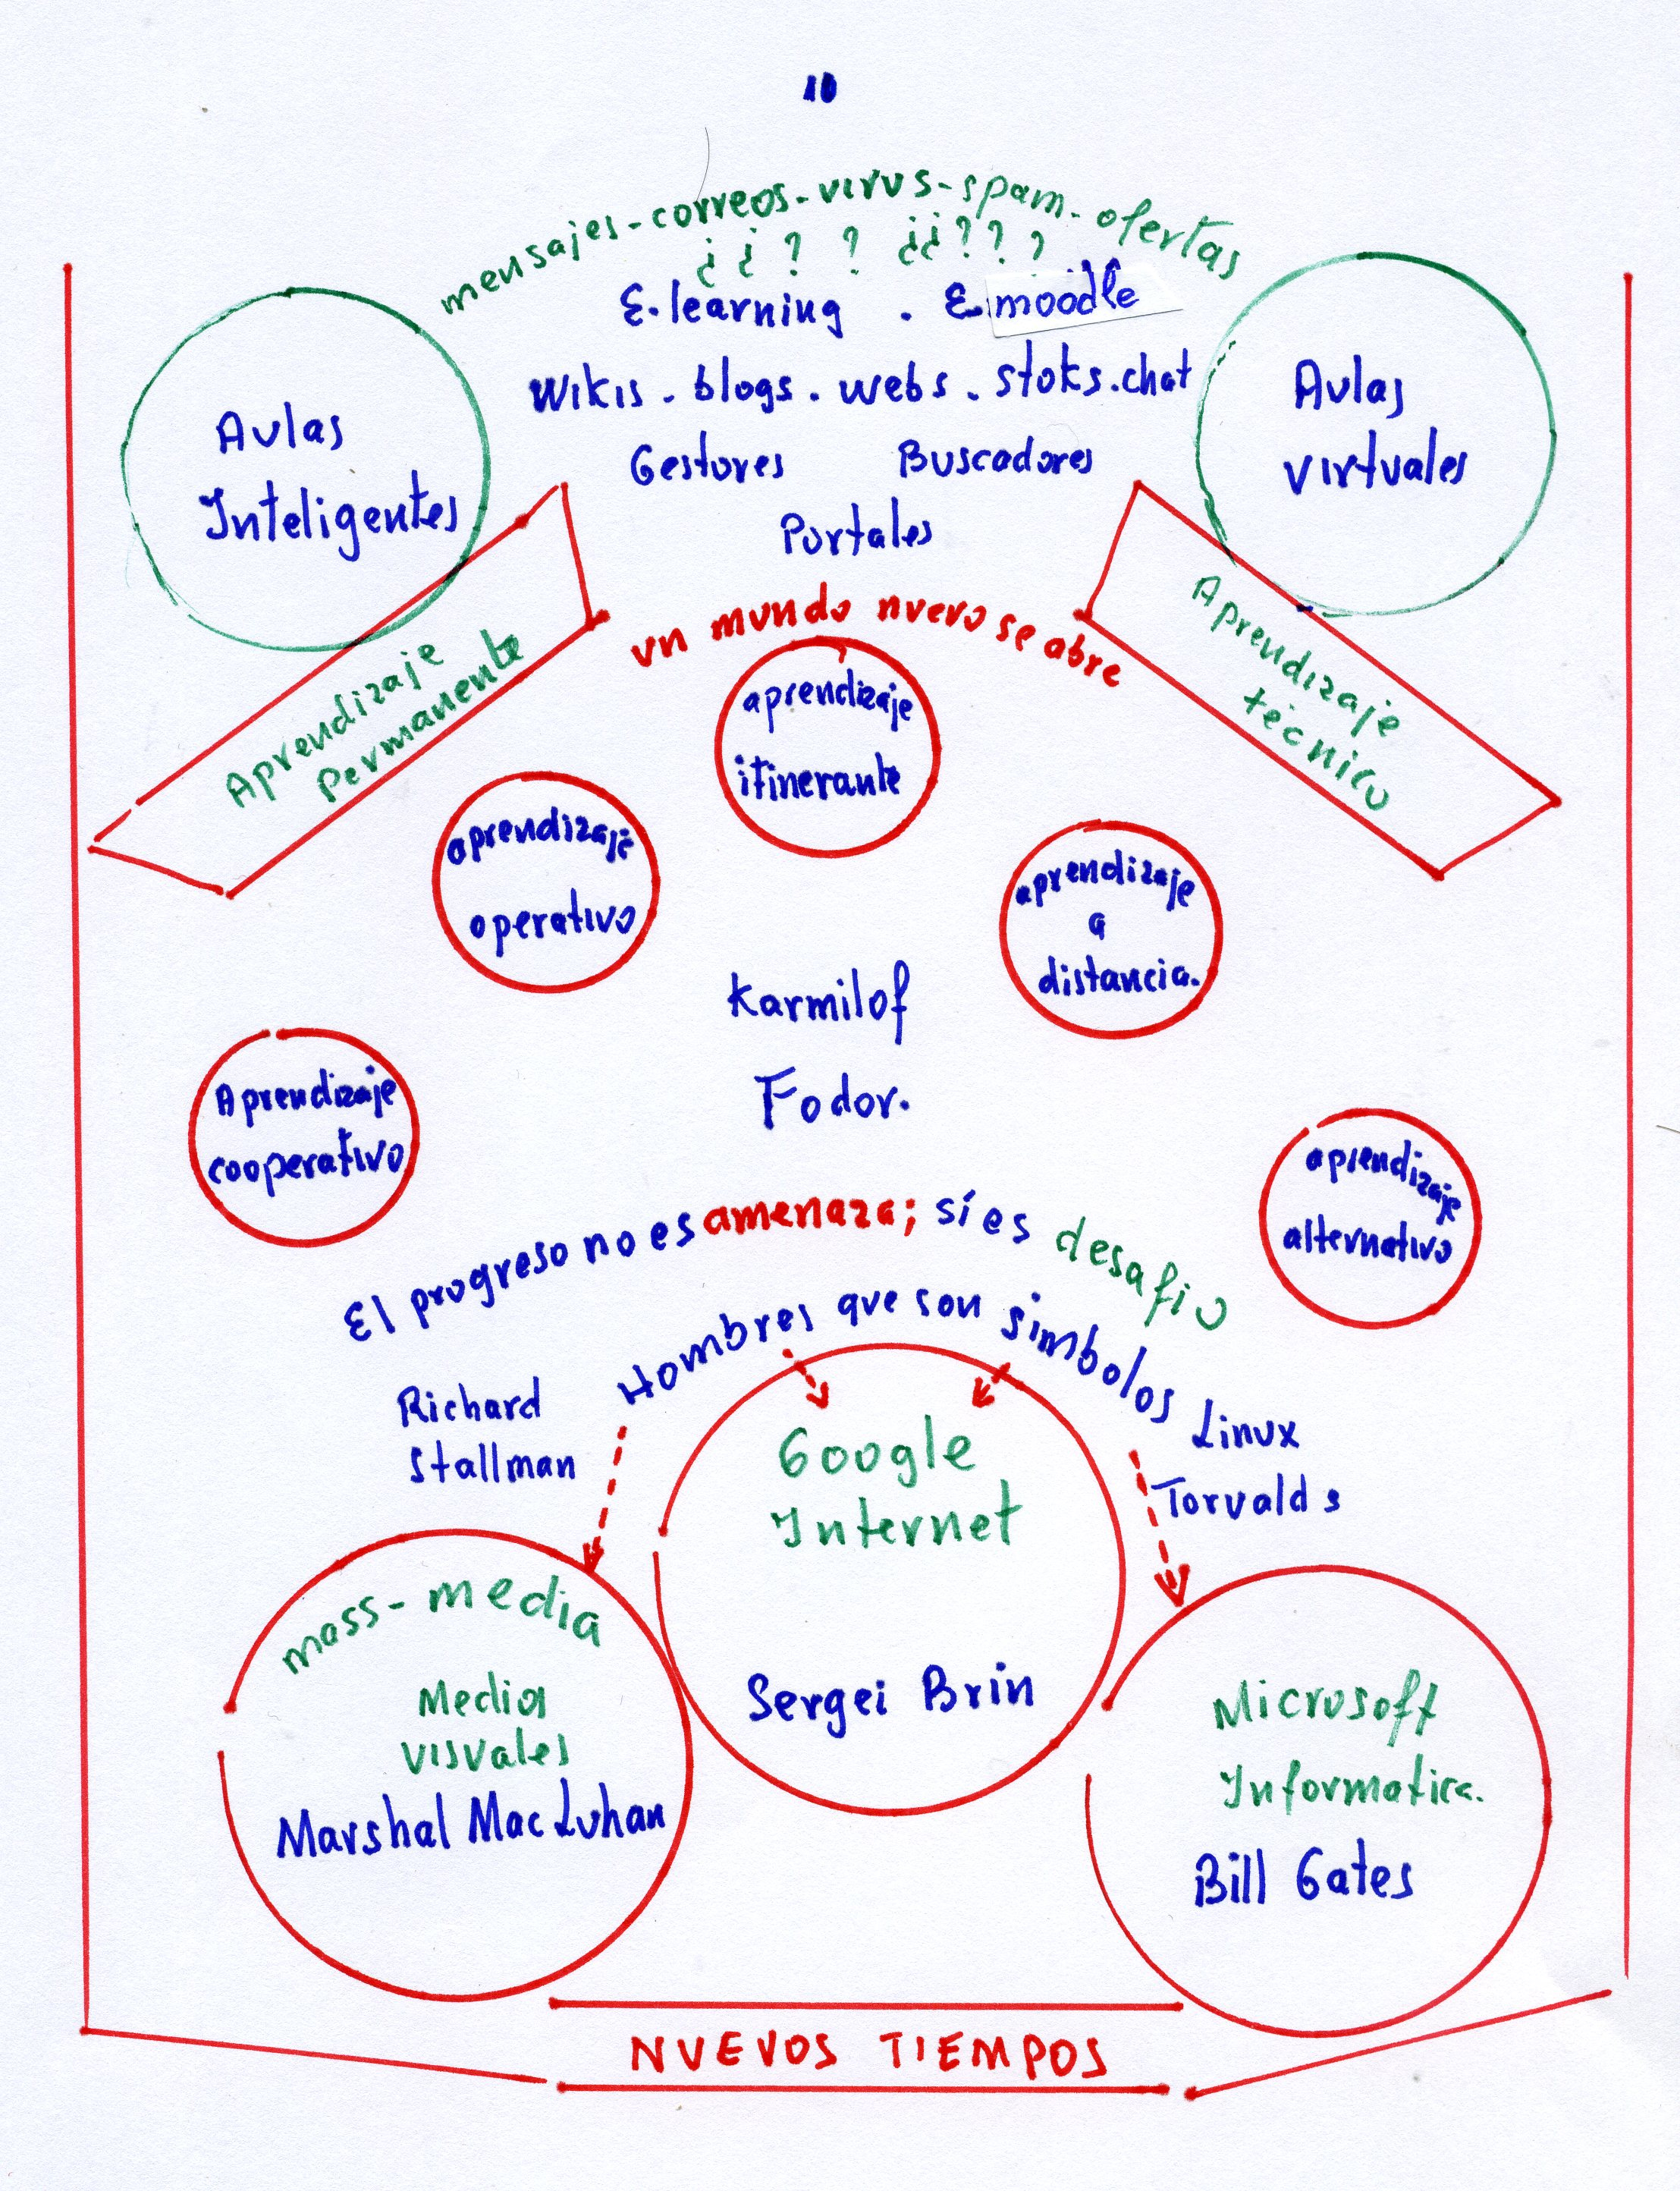 10
mensajes-correos-virus-spam-ofertas
¿¿?? ¿¿???
E.learning . E.moodle
Wikis . blogs . webs . stoks.chat
Gestores Buscadores
Portales
Aulas
Inteligentes
Aulas
virtuales
Aprendizaje
Permanente
un mundo nuevo se abre
Aprendizaje
técnico
aprendizaje
itinerante
aprendizaje
operativo
aprendizaje
a
distancia.
Karmilof
Fodor.
Aprendizaje
cooperativo
aprendizaje
alternativo
El progreso no es amenaza; sí es desafio
Hombres que son simbolos
Richard
Stallman
Linux
Torvalds
Google
Internet
Sergei Brin
mass-media
Medios
visuales
Marshal Mac Luhan
Microsoft
Informatica.
Bill Gates
NUEVOS TIEMPOS